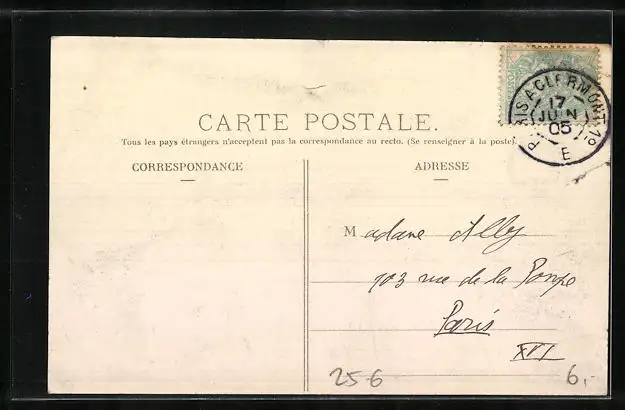 PARIS A CLERMONT 1º
17
JUIN
05
E
CARTE POSTALE.
Tous les pays étrangers n'acceptent pas la correspondance au recto. (Se renseigner à la poste).
CORRESPONDANCE
ADRESSE
Madame Ally
103 rue de la Pompe
Paris
XVI
25-6
6,-